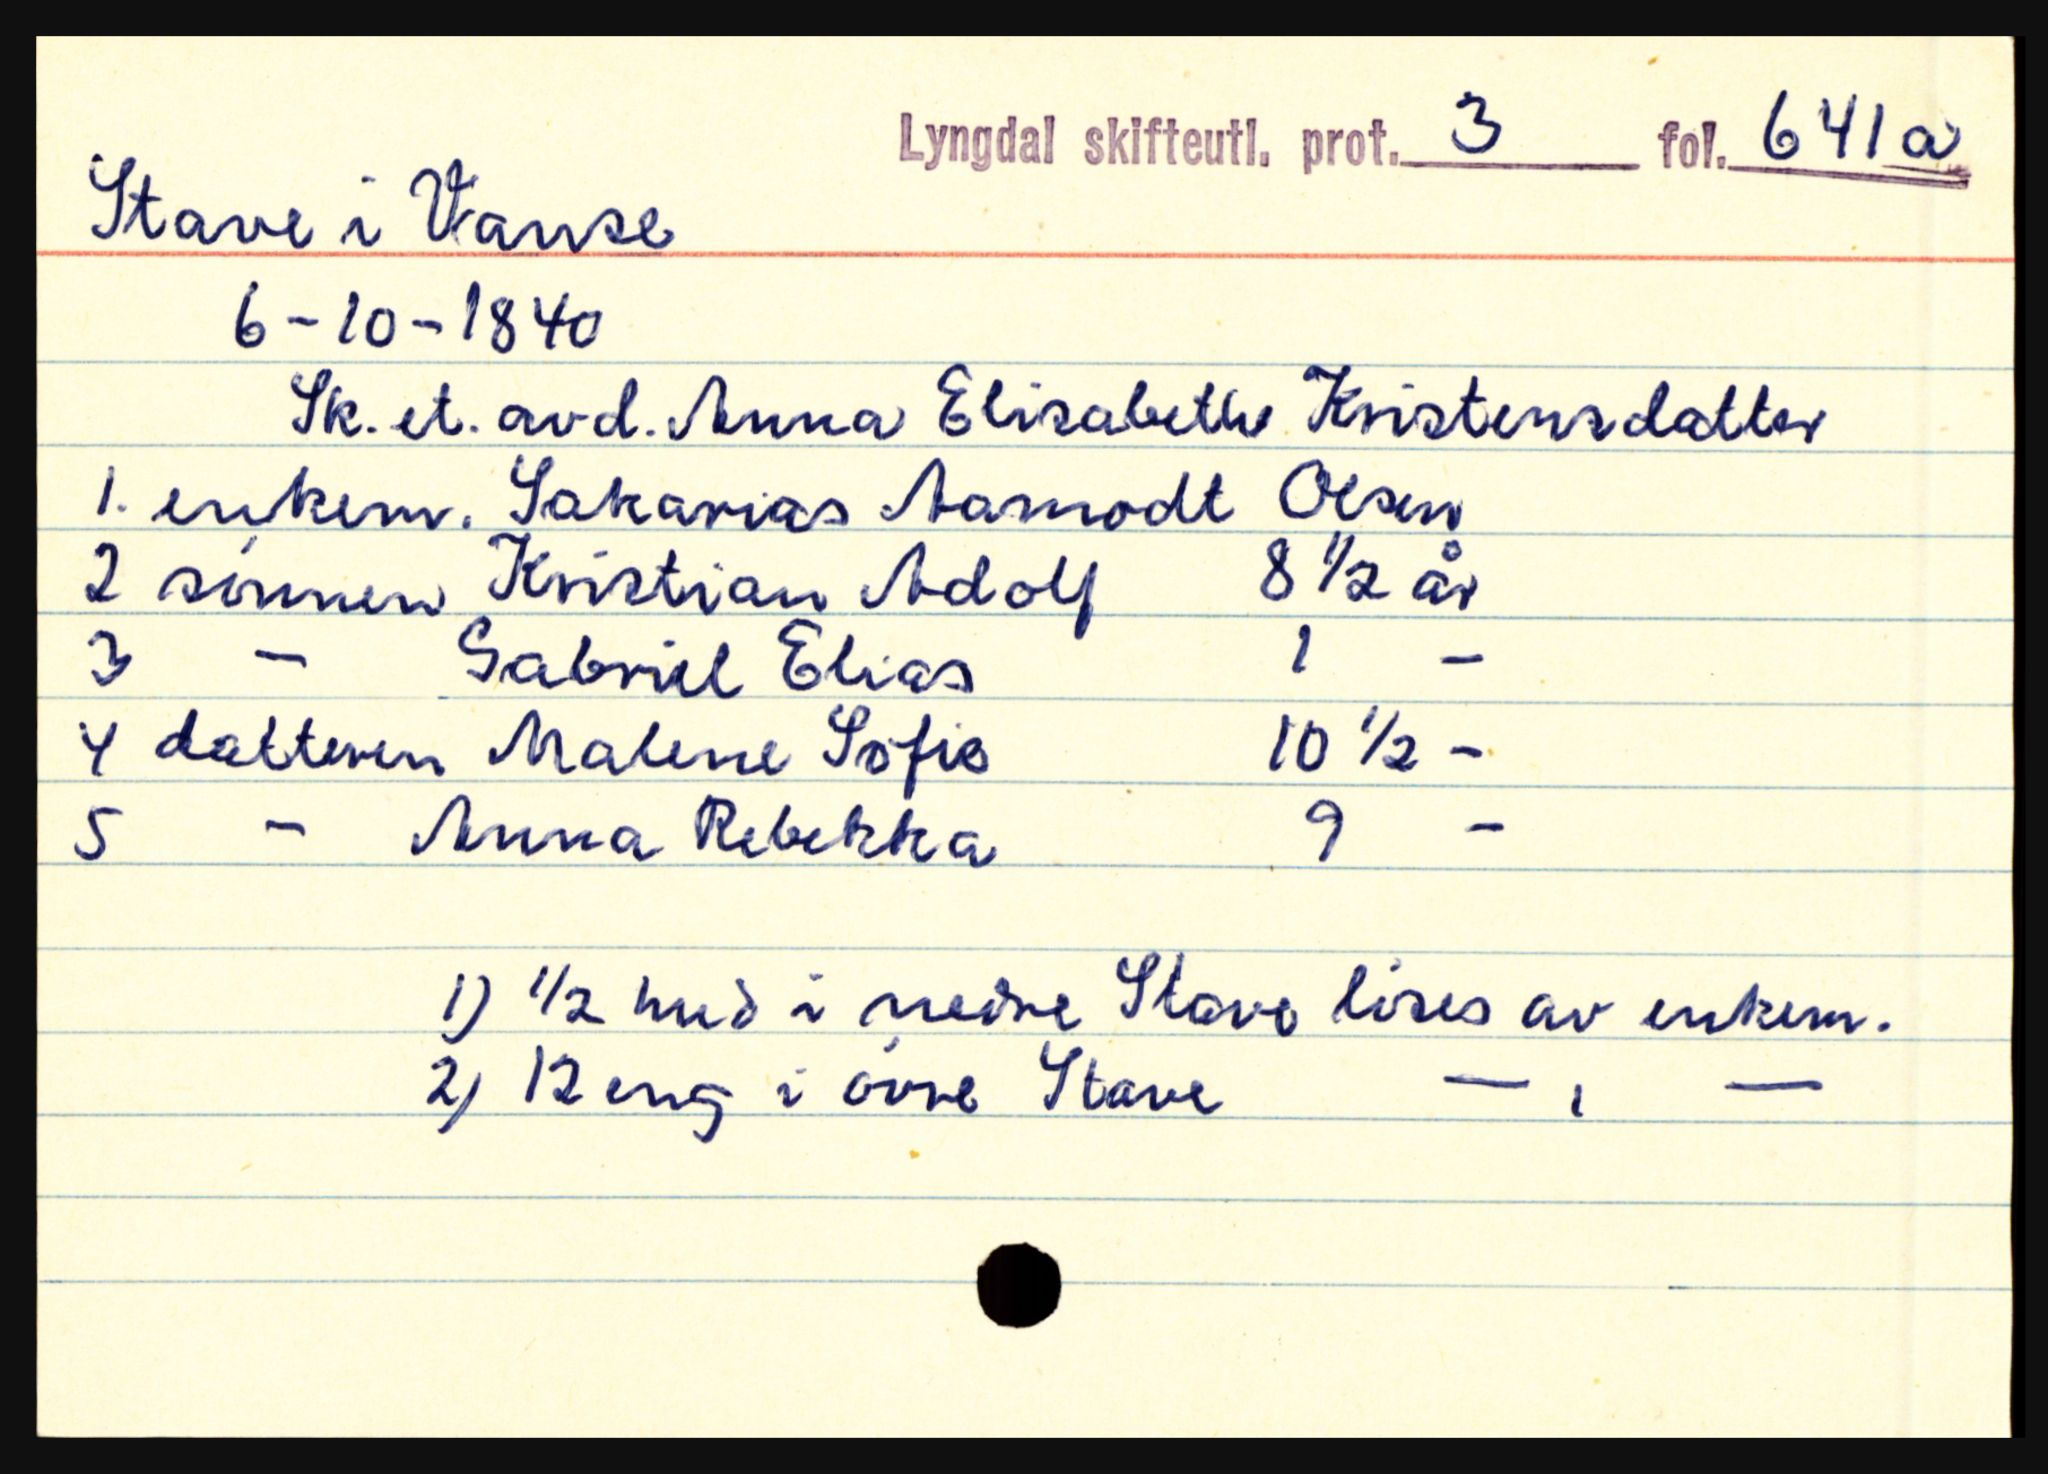 Lyngdal skifteutl. prot. 3 fol. 641a
Stave i Vanse
6-10-1840
Sk. et. avd. Anna Elisabeth Kristensdatter
1. enkem. Sakarias Aamodt Olsen
2 sónnen Kristian Adolf 8 1/2 år
3 - Gabriel Elias 1 -
4 datteren Malene Sofie 10 1/2 -
5 - Anna Rebekka 9 -
1) 1/2 hud i nedre Stave lóses av enkem.
2) 12 eng i óvre Stave — , —